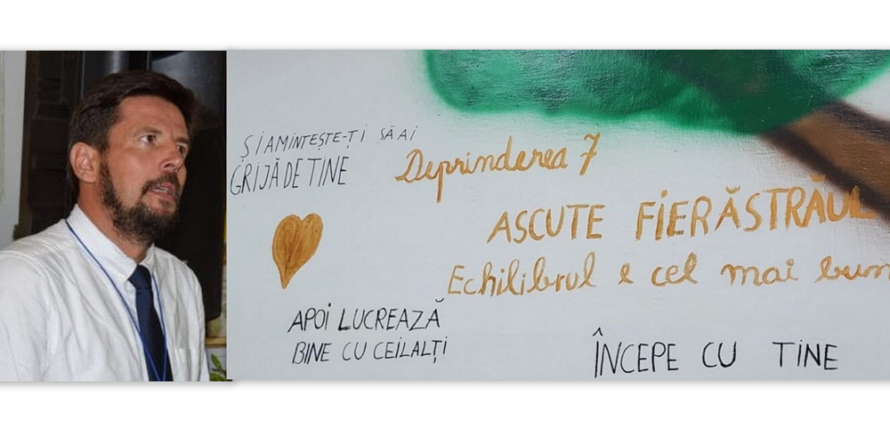 ȘI AMINTEȘTE-ȚI SĂ AI
GRIJĂ DE TINE
Deprinderea 7
ASCUTE FIERĂSTRĂUL
Echilibrul e cel mai bun
APOI LUCREAZĂ
BINE CU CEILALȚI
ÎNCEPE CU TINE